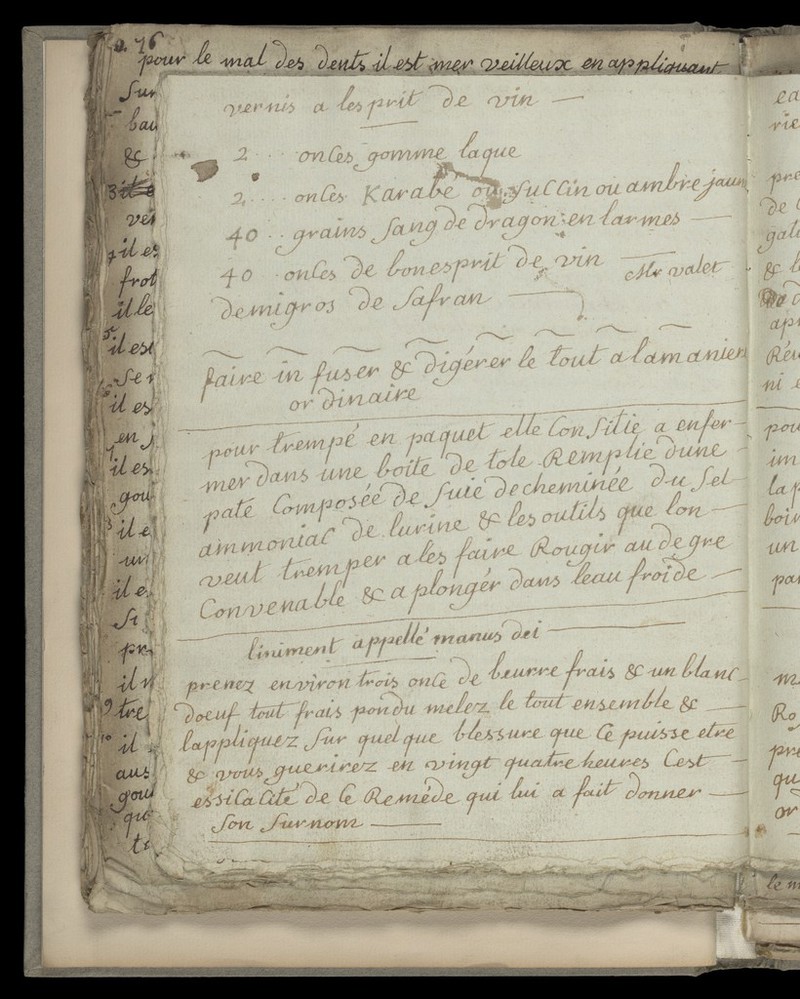 76
pour le mal des dents il est mer veilleux en appliquant
vernis a lesprit de vin
2 .... onces gomme laque
2 .... onces Karabe ou succin ou ambre jaune
40 .. grains sang de dragon en larmes
40 .. onces de bon esprit de vin
Mr valet
demigros de safran
faire in fuser & digérer le tout a la maniere
or dinaire
pour trempé en paquet elle Consitie a enfer
mer dans une boite de tole Remplie dune
paté Composéé de suie de cheminéé du sel
ammoniac de lurine & les outils que lon
veut tremper a les faire Rougir au degre
Convenable & a plonger dans leau froide
liniment appellé manus dei
prenez environ trois once de beurre frais & un blanc
doeuf tout frais pondu melez le tout ensemble &
lappliquez sur quel que blessure que Ce puisse etre
& vous guerirez en vingt quatre heures Cest
essicacité de Ce Reméde qui lui a fait donner
son surnom